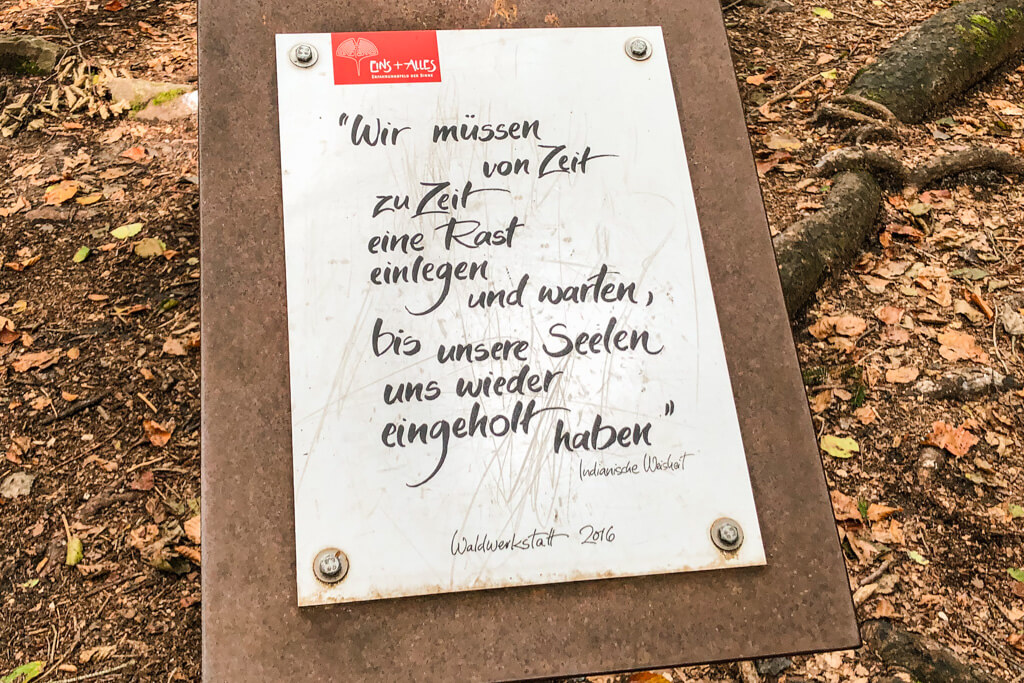 EINS + ALLES
ERFAHRUNGSFELD DER SINNE
"Wir müssen
von Zeit
zu Zeit
eine Rast
einlegen
und warten,
bis unsere Seelen
uns wieder
eingeholt haben"
Indianische Weisheit
Waldwerkstatt 2016